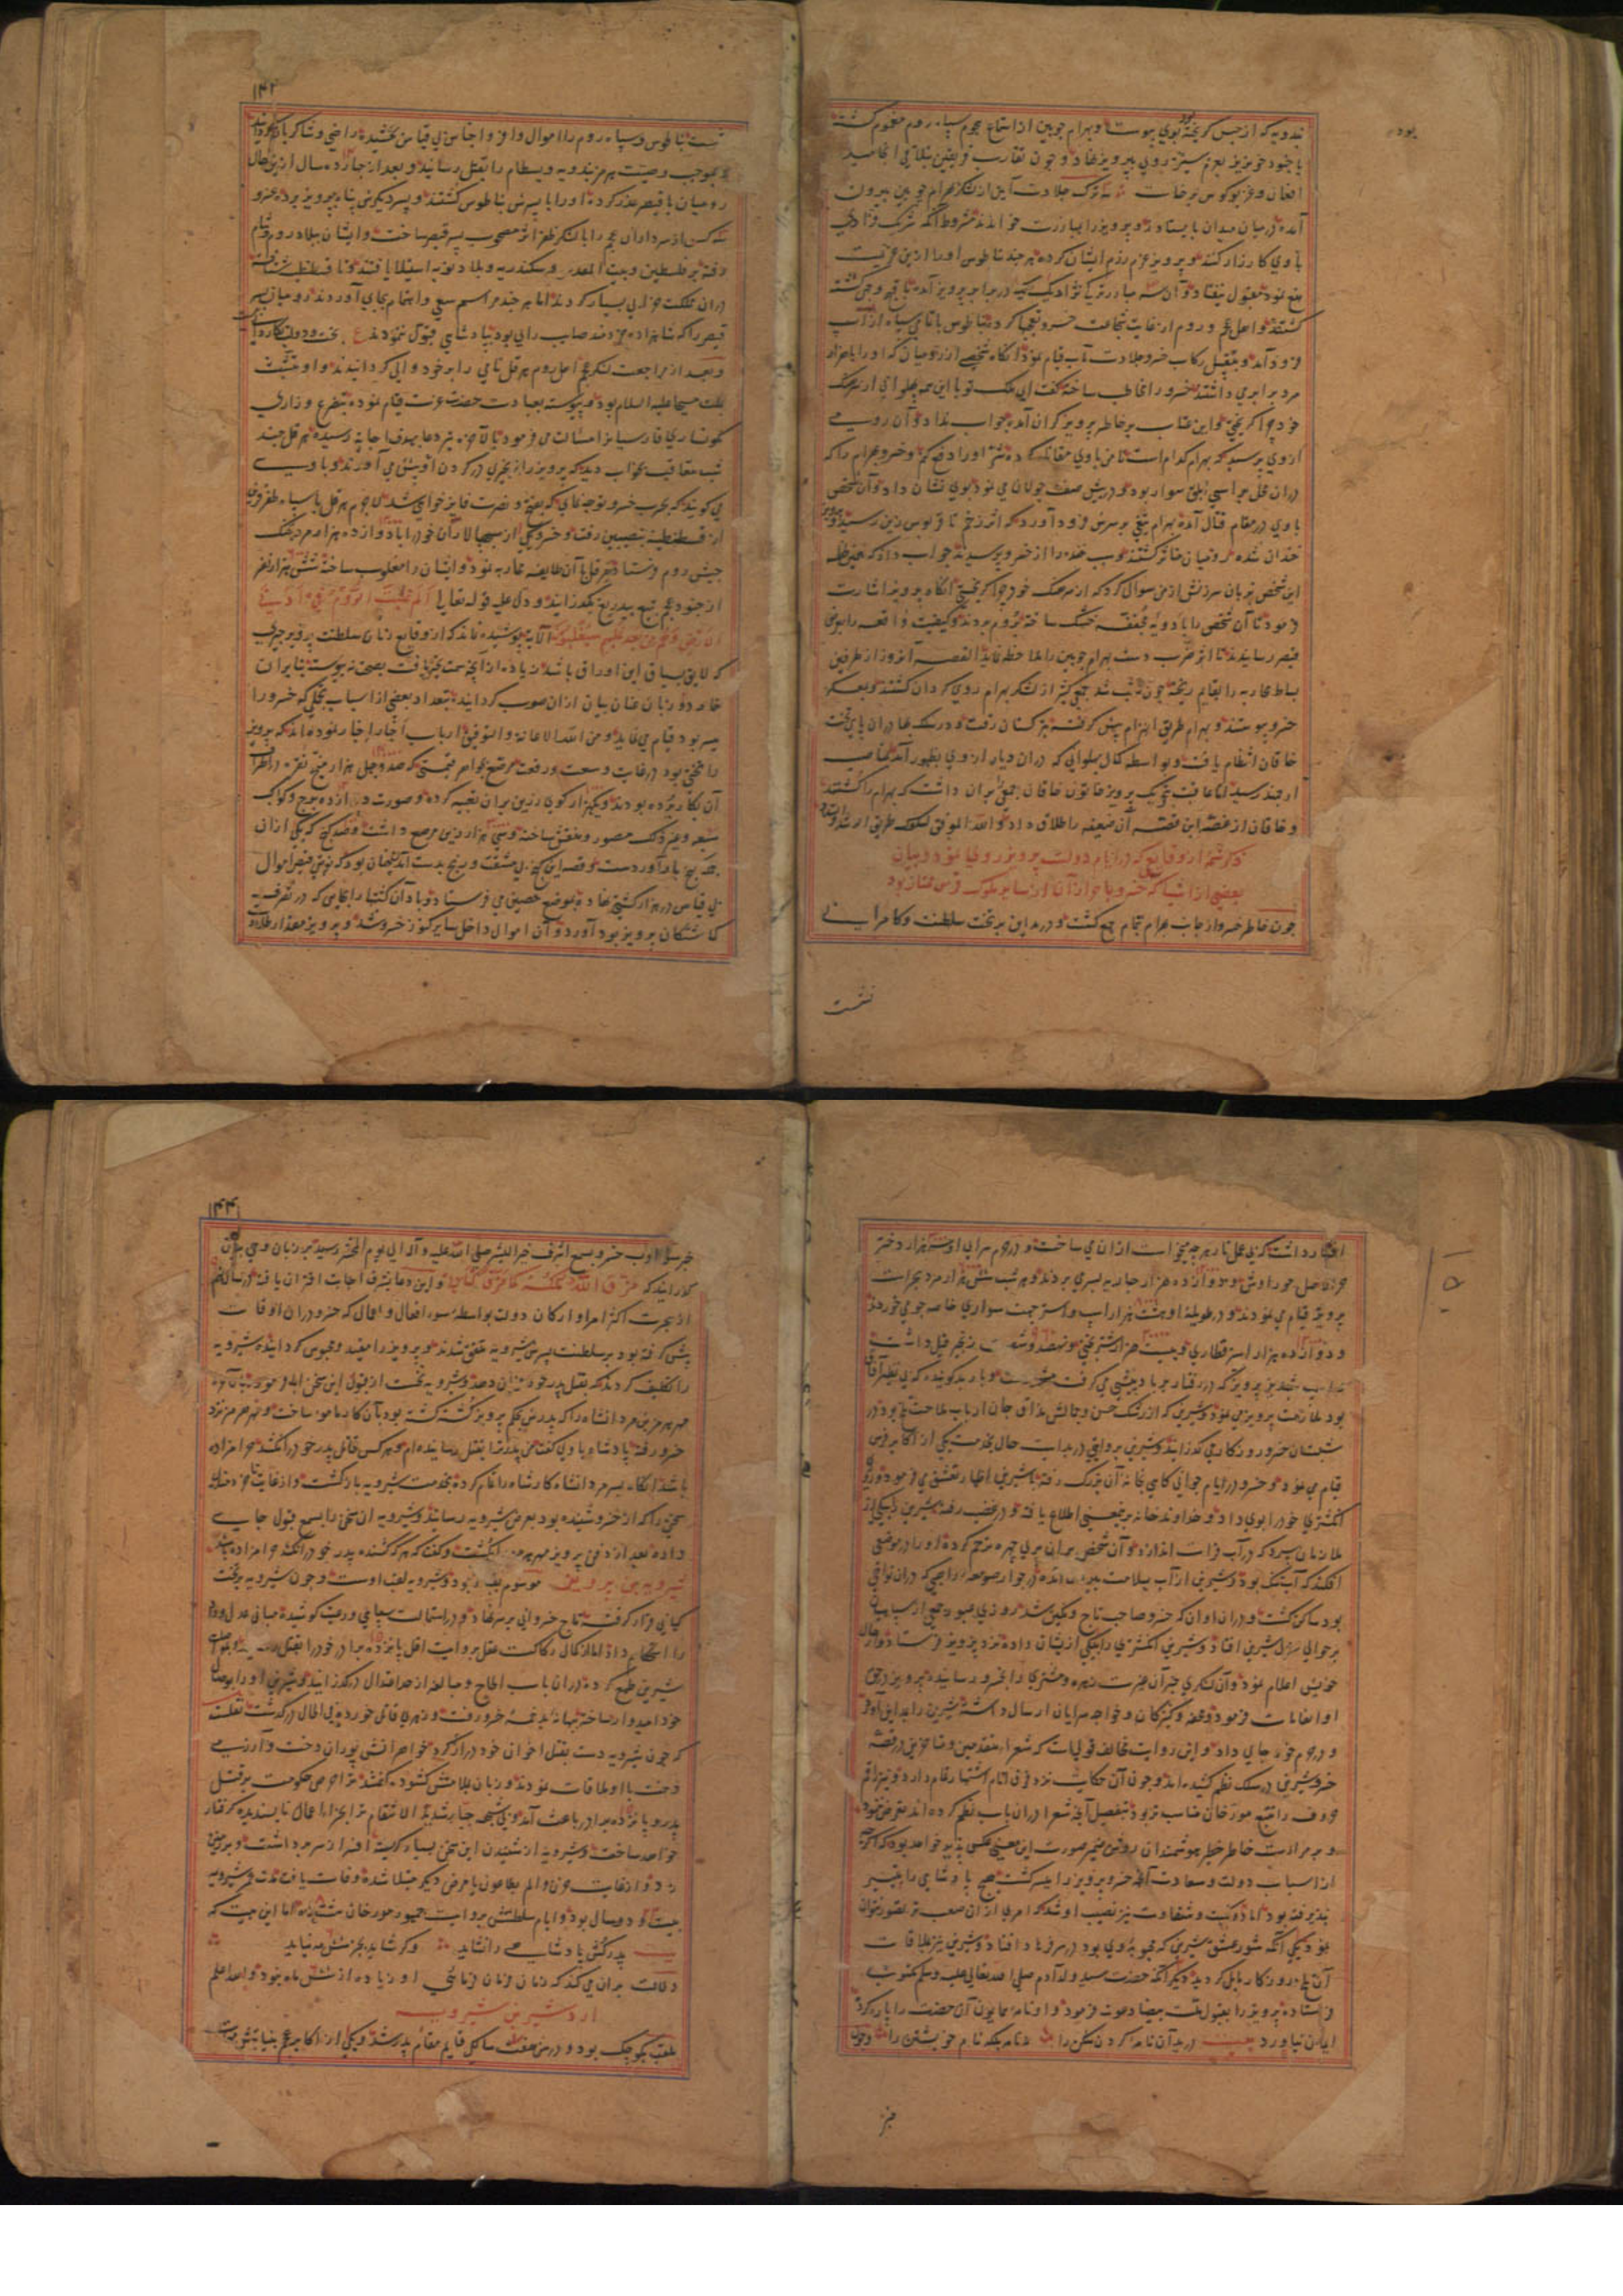 بندویه که از حبس گریخته بوی پیوست و بهرام چوبین از استماع هجوم سپاه روم مغموم گشته
با جنود خونریز بعزم ستیز روی بپرویز نهاد و چون تقارب فریقین بتلاقی انجامید
افغان و غریو کوس برخاست سه ترک جلادت آیین از لشکر بهرام چوبین بیرون
آمده در میان میدان بایستادند و پرویز را بمبارزت خواندند مشروط آنکه شریک
با وی کارزار کنند و پرویز عزم رزم ایشان کرده هر چند نیاطوس او را ازین عزیمت
منع نمود مقبول نیفتاد و آن سه مبارز ترک نژاد یک یک در برابر پرویز آمده
کشتند و اهل عجم و روم از غایت شجاعت خسرو تعجبها کرده نیاطوس با تمامی سپاه از اسپ
فرود آمد و بتقبیل رکاب خسرو جلادت مآب قیام نمود آنگاه شخصی از رومیان که او را با هزار
مرد برابر می داشتند خسرو را مخاطب ساخته گفت ای ملک تو با این همه پهلوانی از سرهنگ
خود چرا گریختی و این عتاب بر خاطر پرویز گران آمده جواب نداد و آن رومی
از وی پرسید که بهرام کدام است تا من با وی مقاتله کرده شر او را دفع کنم و خسرو بهرام را که
در آن محل بر اسپی ابلق سوار بود و در پیش صف جولان می نمود بوی نشان داد و آن شخص
با وی در مقام قتال آمده بهرام تیغی بر سرش فرود آورد که اثر زخم تا قربوس زین رسید و پرویز
خندان شده رومیان متاثر گشتند و سبب خنده را از خسرو پرسیدند جواب داد که همین لحظه
این شخص بزبان سرزنش از من سوال کرد که از سرهنگ خود چرا گریختی آنگاه پرویز اشارت
فرمود تا آن شخص را با دویه مجففه خشک ساخته بروم بردند و کیفیت واقعه را بعرض
قیصر رسانیدند تا اثر ضرب دست بهرام چوبین را ملاحظه نماید القصه آنروز از طرفین
بساط محاربه را بقایم ریخته چون شب شد جمعی کثیر از لشکر بهرام روی گردان گشتند و بمعسکر
خسرو پیوستند و بهرام طریق انهزام پیش گرفته بترکستان رفت و در سلک ملازمان پای تخت
خاقان انتظام یافت و بواسطه کمال پهلوانی که در آن دیار از وی بظهور آمد بمناصب
ارجمند رسید اما عاقبت بتحریک پرویز خاتون خاقان شخصی را بر آن داشت که بهرام را کشتند
و خاقان از غصه این قصه آن ضعیفه را طلاق داد و الله الموفق لسلوک طریق الرشاد
ذکر شمه از وقایع که در ایام دولت پرویز روی نمود و بیان
بعضی از اشیا که خسرو با حراز آن از سایر ملوک فرس ممتاز بود
چون خاطر خسرو از جانب بهرام بتمام جمع گشت و در مداین بر تخت سلطنت و کامرانی
نشست
بود
۱۴۳
نشست نیاطوس و سپاه روم را اموال وافر و اجناس بی قیاس بخشیده راضی و شاکر بازگردانید
و بموجب وصیت هرمز بندویه و بسطام را بقتل رسانید و بعد از چهارده سال از این حال
رومیان با قیصر غدر کرده او را با پسرش نیاطوس کشتند و پسر دیگرش پناه بپرویز برده خسرو
سه کس از سرداران عجم را با لشکر ظفر اثر مصحوب پسر قیصر ساخت و ایشان ببلاد روم و شام
رفته بر فلسطین و بیت المقدس و اسکندریه و بلاد نوبه استیلا یافتند و تا قسطنطنیه شتافته
در آن مملکت خرابی بسیار کردند اما هر چند مراسم سعی و اهتمام بجای آوردند رومیان پسر
قیصر را که شاهزاده خردمند صایب رای بود بپادشاهی قبول ننمودند ع بخت و دولت بکاردانی نیست
و بعد از مراجعت لشکر عجم اهل روم هرقل نامی را بر خود والی گردانیدند و او متمسک
بملت مسیحا علیه السلام بود و پیوسته بعبادت حضرت عزت قیام نموده بتضرع و زاری
نگونساری فارسیان را مسالت می فرمود تا آخر تیر دعا بهدف اجابت رسیده هرقل چند
شب متعاقب بخواب دید که پرویز را زنجیری در گردن او پیش می آورند و با وی
می گویند که بحرب خسرو توجه نمای که بفتح و نصرت فایز خواهی شد لاجرم هرقل با سپاه ظفر قرین
از قسطنطنیه بنصیبین رفت و خسرو یکی از سپهسالاران خود را با دوازده هزار مرد بجنگ
جیش روم فرستاد هرقل با آن طایفه محاربه نمود و ایشان را مغلوب ساخته شش هزار نفر
از جنود عجم بتیغ بیدریغ بگذرانید و دل علیه قوله تعالی الم غلبت الروم فی ادنی
الارض و هم من بعد غلبهم سیغلبون الآیه پوشیده نماند که از وقایع زمان سلطنت پرویز چیزی
که لایق سیاق این اوراق باشد زیاده از آنچه سمت تحریر یافت بصحت نه پیوسته بنابر آن
خامه دو زبان عنان بیان از آن صوب گردانیده بتعداد بعضی از اسباب تجمل که خسرو را
میسر بود قیام می نماید و من الله الاعانة و التوفیق ارباب اخبار اخبار نموده اند که پرویز
را تختی بود در غایت وسعت و رفعت مرصع بجواهر قیمتی که صد و چهل هزار میخ نقره در اطراف
آن بکار برده بودند و یکهزار گوی زرین بر آن تعبیه کرده و صورت دوازده برج و کواکب
سبعه و غیر ذلک مصور و منقش ساخته و سی هزار زین مرصع داشت و صد گنج که یکی از آن
جمله گنج بادآورد است و قصه این گنج بی مشقت و رنج بدست آمدن چنان بود که نوبتی قیصر اموال
بی قیاس در هزار کشتی نهاده بموضع حصین می فرستاد و باد آن کشتیها را بجایی که در تصرف
گماشتگان پرویز بود آورد و آن اموال داخل سایر کنوز خسرو شد و پرویز مقداری طلا
افشار داشت که بی عمل نار هر چه میخواست از آن می ساخت و در حرم سرای او سه هزار دختر
حره فاضل حوراوش و دوازده هزار جاریه بسر می بردند و هر شب شش هزار مرد بحراست
پرویز قیام می نمودند و در طویله او هشت هزار اسپ و استر جهت سواری خاصه جو می خوردند
و دوازده هزار استر قطاری و بیست هزار شتر بختی و نهصد و شصت زنجیر فیل داشت
و اسپ شبدیز پرویز که در رفتار بر باد پیشی می گرفت مشهور است و باربد گوینده که بی نظیر آفاق
بود ملازمت پرویز می نمود و شیرین که از رشک حسن و جمالش مذاق جان ارباب ملاحت تلخ بود در
شبستان خسرو روزگار می گذرانید و شیرین بروایتی در بدایت حال بخدمت یکی از اکابر فرس
قیام می نمود و خسرو در ایام جوانی گاهی بخانه آن بزرگ رفته با شیرین اظهار تعشق می فرمود روزی
انگشتری خود را بوی داد و خداوند خانه بر این معنی اطلاع یافته و در غضب رفته شیرین را بیکی از
ملازمان سپرد که در آب فرات اندازد و آن شخص بر آن پری چهره ترحم کرده او را در موضعی
افکند که آب تنک بود و شیرین از آب بسلامت بیرون آمده در جوار صومعه راهبی که در آن نواحی
بود ساکن گشت و در آن اوان که خسرو صاحب تاج و نگین شد روزی عبور جمعی از سپاهیان
بر حوالی منزل شیرین افتاد و شیرین انگشتری را بیکی از ایشان داده نزد پرویز فرستاد و از حال
خویش اعلام نمود و آن لشکری خبر آن غیرت زهره و مشتری را بخسرو رسانیده پرویز در حق
او انعامات فرمود و محفه و کنیزکان و خواجه سرایان ارسال داشته شیرین را بمداین آورد
و در حرم خود جای داد و این روایت مخالف قولیست که شعراء متقدمین و متاخرین در قصه
خسرو شیرین در سلک نظم کشیده اند و چون آن حکایت نزد فرق انام اشتهار تمام دارد و نیز راقم
حروف را تتبع مورخان مناسب تر بود بتفصیل آنچه شعرا در آن باب نظم کرده اند تعرض ننمود
و بر مرآت خاطر خطیر هوشمندان روشن ضمیر صورت این معنی عکس پذیر خواهد بود که اگرچه
از اسباب دولت و سعادت آنچه خسرو پرویز را میسر گشت هیچ پادشاهی را تیسیر
نپذیرفته بود اما نکبت و شقاوت نیز نصیب او شد که امری از آن صعب تر تصور نتوان
نمود یکی آنکه شور عشق شیرین که محبوبه وی بود در سر فرهاد افتاد و شیرین نیز بملاقات
آن تلخ روزگار مایل گردید و دیگر آنکه حضرت سید ولد آدم صلی الله تعالی علیه و سلم مکتوب
فرستاده پرویز را بقبول ملت بیضا دعوت فرمود و او نامه همایون آن حضرت را پاره کرد
ایمان نیاورد بیت درید آن نامه گردن شکن را نه نامه بلکه نام خویشتن را و چون
خبر
۱۴۴
خبر سوء ادب خسرو بسمع اشرف خیر البشر صلی الله علیه و آله الی یوم المحشر رسید بر زبان وحی بیان
گذرانید که مزق الله ملکه کما مزق کتابی و این دعا بشرف اجابت اقتران یافته در سال هفتم
از هجرت اکثر امرا و ارکان دولت بواسطه سوء افعال و اعمال که خسرو در آن اوقات
پیش گرفته بود بر سلطنت پسرش شیرویه متفق شدند و پرویز را مقید و محبوس گردانیده شیرویه
را تکلیف کردند که بقتل پدر خود فرمان دهد و شیرویه نخست از قبول این سخن ابا نمود
مهر هرمز بن مردانشاه را که پدرش بحکم پرویز کشته گشته بود بآن کار مامور ساخت و مهر هرمز نزد
خسرو رفته پادشاه با وی گفت من پدر ترا بقتل رسانیده ام و هر کس قاتل پدر خود را نکشد حرامزاده
باشد آنگاه پسر مردانشاه کار شاه را تمام کرده بخدمت شیرویه بازگشت و از غایت بی خردی
سخنی را که از خسرو شنیده بود بعرض شیرویه رسانید و شیرویه آن سخن را بسمع قبول جای
داده بعد از دفن پرویز مهر هرمز را بکشت و گفت که هر که کشنده پدر خود را نکشد حرامزاده باشد
شیرویه بن پرویز موسوم بقباد بود و شیرویه لقب اوست و چون شیرویه بر تخت
کیانی قرار گرفت تاج خسروانی بر سر نهاد و در استمالت سپاهی و رعیت کوشیده مبانی عدل و داد
را استحکام داد اما از کمال رکاکت عقل بروایت اقل پانزده برادر خود را بقتل رسانید و بوصل
شیرین طمع کرده در آن باب الحاح و مبالغه از حد اعتدال در گذرانید و شیرین او را بوصال
خود امیدوار ساخته بهانه بدخمه خسرو رفت و زهری قاتل خورده فی الحال درگذشت نقلست
که چون شیرویه دست بقتل اخوان خود دراز کرد خواهرانش پوران دخت و آزرمی
دخت با او ملاقات نمودند و زبان بملامتش گشوده گفتند ترا حرص حکومت بر قتل
پدر و پانزده برادر باعث آمد و بی شبهه جبار شدید الانتقام ترا بجزاء اعمال ناپسندیده گرفتار
خواهد ساخت و شیرویه از شنیدن این سخن بسیار گریسته افسر از سر برداشت و بر زمین
زد و از غایت حزن و الم بطاعون یا مرض دیگر مبتلا شده وفات یافت مدت عمر شیرویه
بیست و دو سال بود و ایام سلطنتش بروایت جمهور مورخان هشت ماه اما این بیت که
بیت پدرکش پادشاهی را نشاید و گر شاید بجز شش مه نپاید
دلالت بر آن می کند که زمان فرمان فرمائی او زیاده از شش ماه نبود و الله اعلم
اردشیر بن شیرویه
ملقب بکوچک بود و در سن هفت سالگی قایم مقام پدر شد و یکی از اکابر عجم